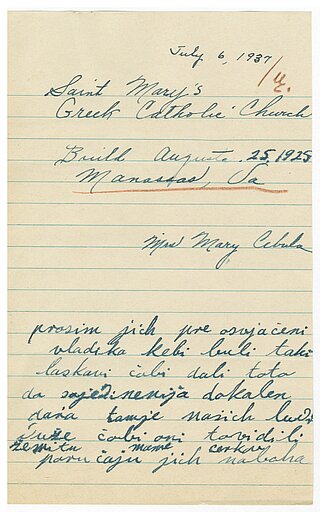 July 6, 1937
Saint Mary's
Greek Catholic Church
Build Auguste. 25, 1925
Manassas, Va
Mrs Mary Cebula
prosim jich pre osvjačeni
vladika kebi buli taki
laskavi čobi dali toto
do sojedinenija dokalen
daňa tamje našich ludi
čobi oni to vidili
žemitu mame cerkov
poručaju jich naboha